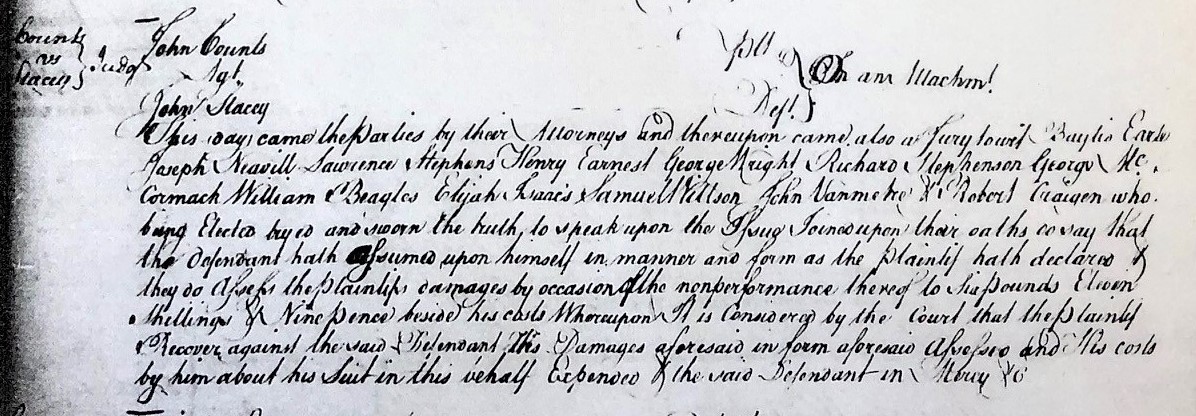 Counts
vs } Judgt
Stacey
John Counts Plt
Agt. } On an Attachmt.
John Stacey Deft.
This day came the parties by their Attorneys and thereupon came also a Jury towit Baylis Earle
Joseph Neavill Lawrence Stephens Henry Earnest George Wright Richard Stephenson George Mc.
Cormack William Beagles Elijah Isaacs Samuel John Vanmetre & Robert Craigen who
being Elected tryed and sworn the truth to speak upon the Issue Joined upon their oaths do say that
the defendant hath assumed upon himself in manner and form as the plaintif hath declared &
they do assess the plaintifs damages by occasion of the nonperformance thereof to Six pounds Eleven
Shillings & Nine pence beside his costs Whereupon It is Considered by the Court that the plaintif
Recover against the said Defendant His Damages aforesaid in form aforesaid assessed and His costs
by him about his Suit in this behalf Expended & the said Defendant in Mercy &c